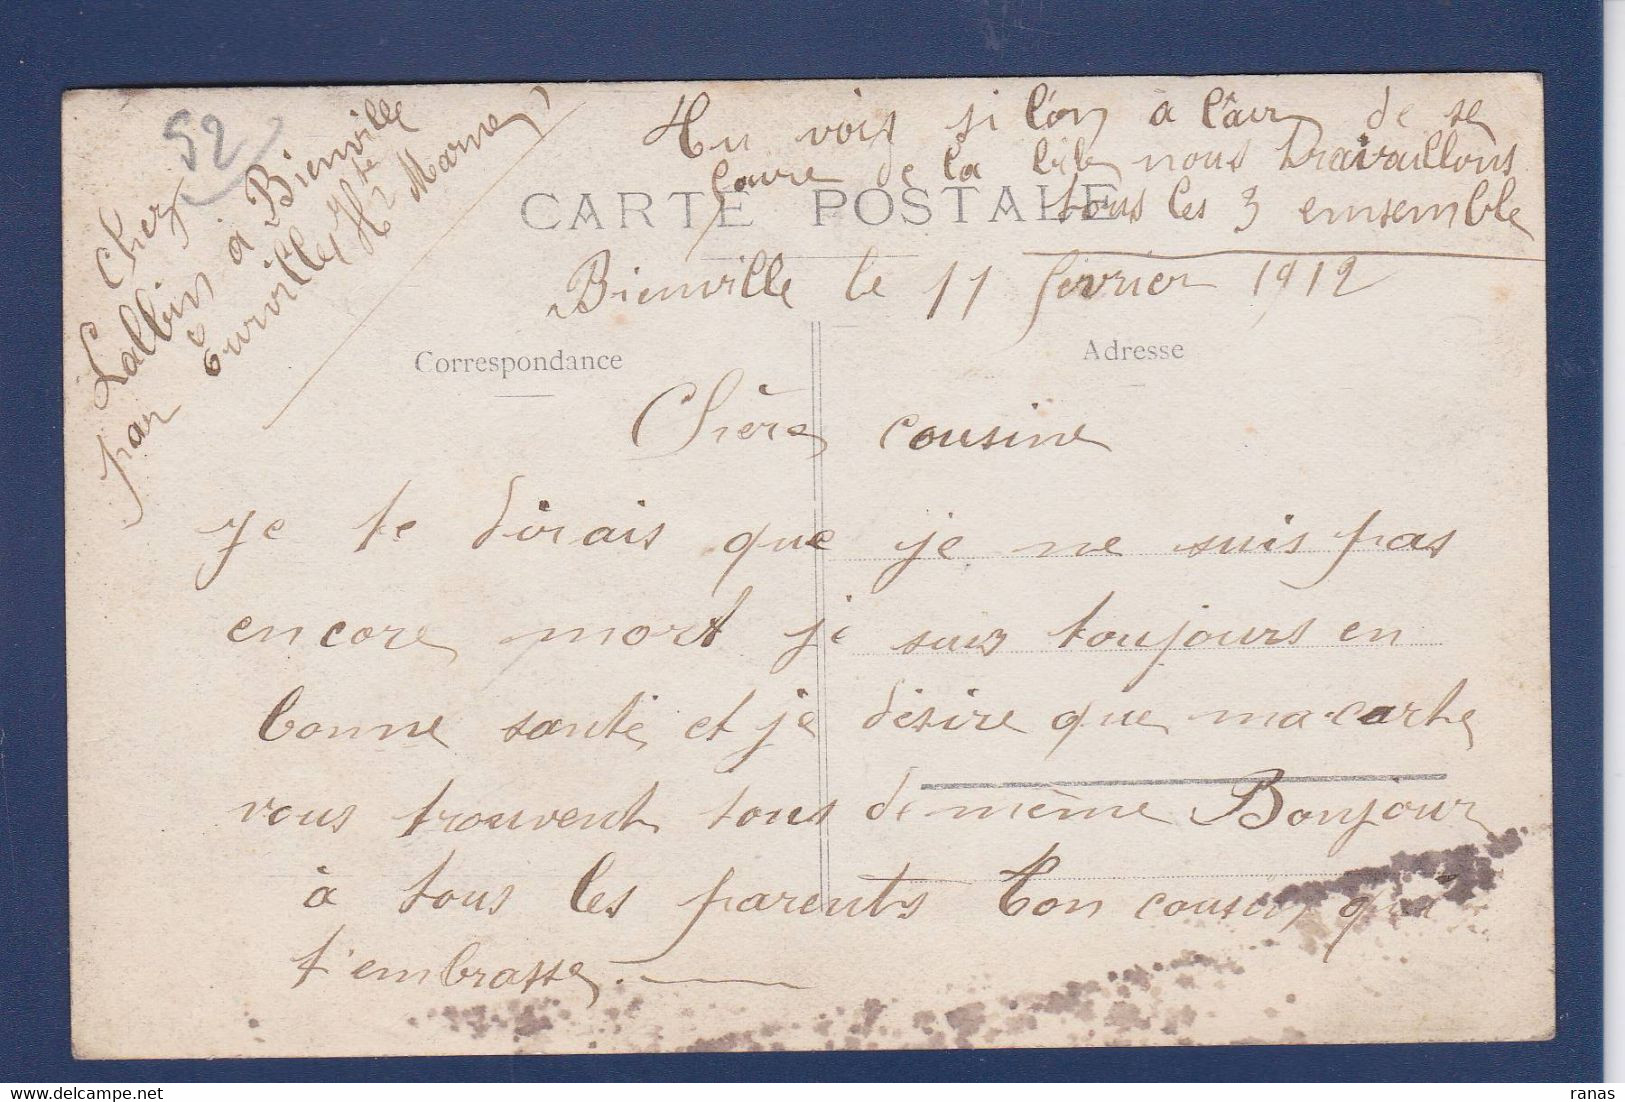 52
Chez
Lallin à Bienville
par Eurville (Hte Marne)
Tu vois si l'on à l'air de se
faire de la bile nous travaillons
tous les 3 ensemble
CARTE POSTALE
Bienville le 11 février 1912
Correspondance
Adresse
Chère cousine
Je te dirais que je ne suis pas
encore mort je suis toujours en
bonne santé et je désire que ma carte
vous trouvent tous de même Bonjour
à tous les parents Ton cousin qui
t'embrasse.
ranas